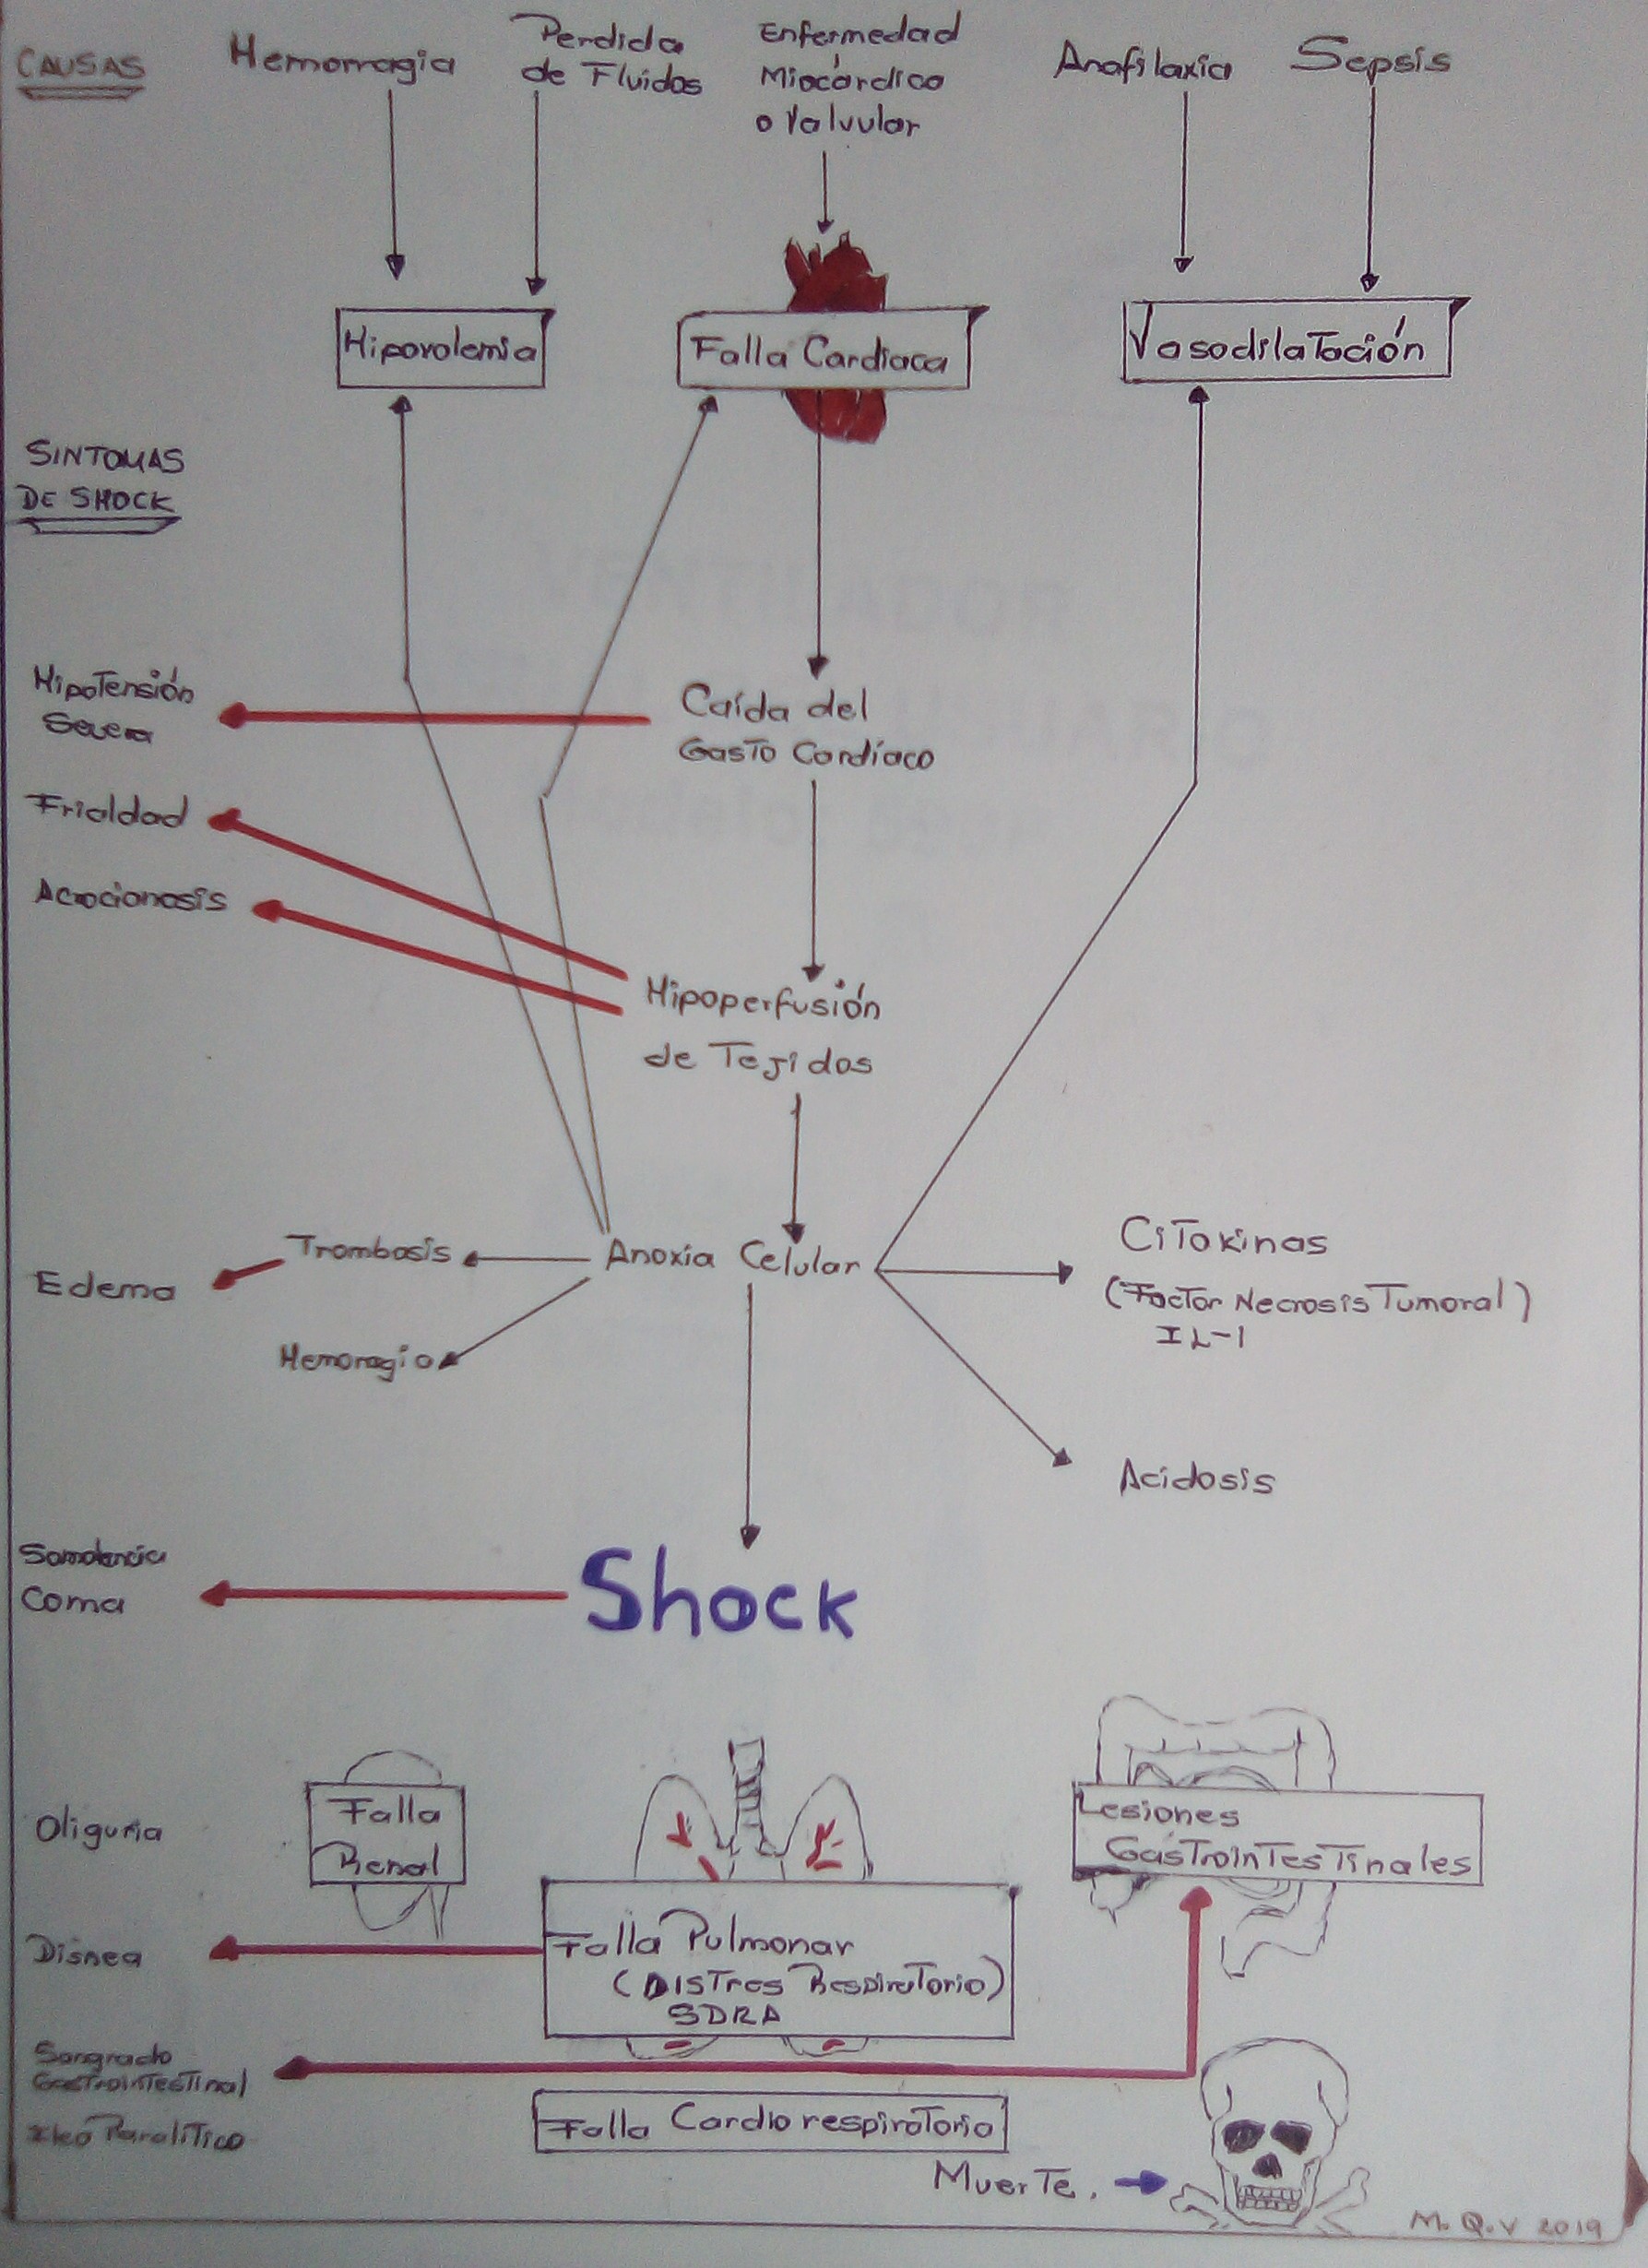 CAUSAS
Hemorragia
Perdida
de Fluidos
Enfermedad
Miocárdico
o Valvular
Anafilaxia
Sepsis
Hipovolemia
Falla Cardiaca
Vasodilatación
SINTOMAS
DE SHOCK
Hipotensión
Severa
Caída del
Gasto Cardíaco
Frialdad
Acrocianosis
Hipoperfusión
de Tejidos
Trombosis
Anoxia Celular
Citokinas
(Factor Necrosis Tumoral)
IL-1
Edema
Hemoragia
Acidosis
Somolencia
Coma
Shock
Oliguria
Falla
Renal
Lesiones
Gastrointestinales
Disnea
Falla Pulmonar
(Distres Respiratorio)
SDRA
Sangrado
Gastrointestinal
Ileo Paralitico
Falla Cardiorespiratorio
Muerte.
M.Q.V 2019